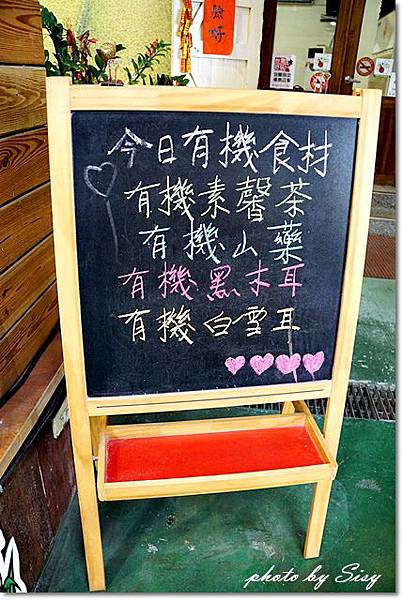 好
今日有機食材
有機素馨茶
有機山藥
有機黑木耳
有機白雪耳
photo by Sisy